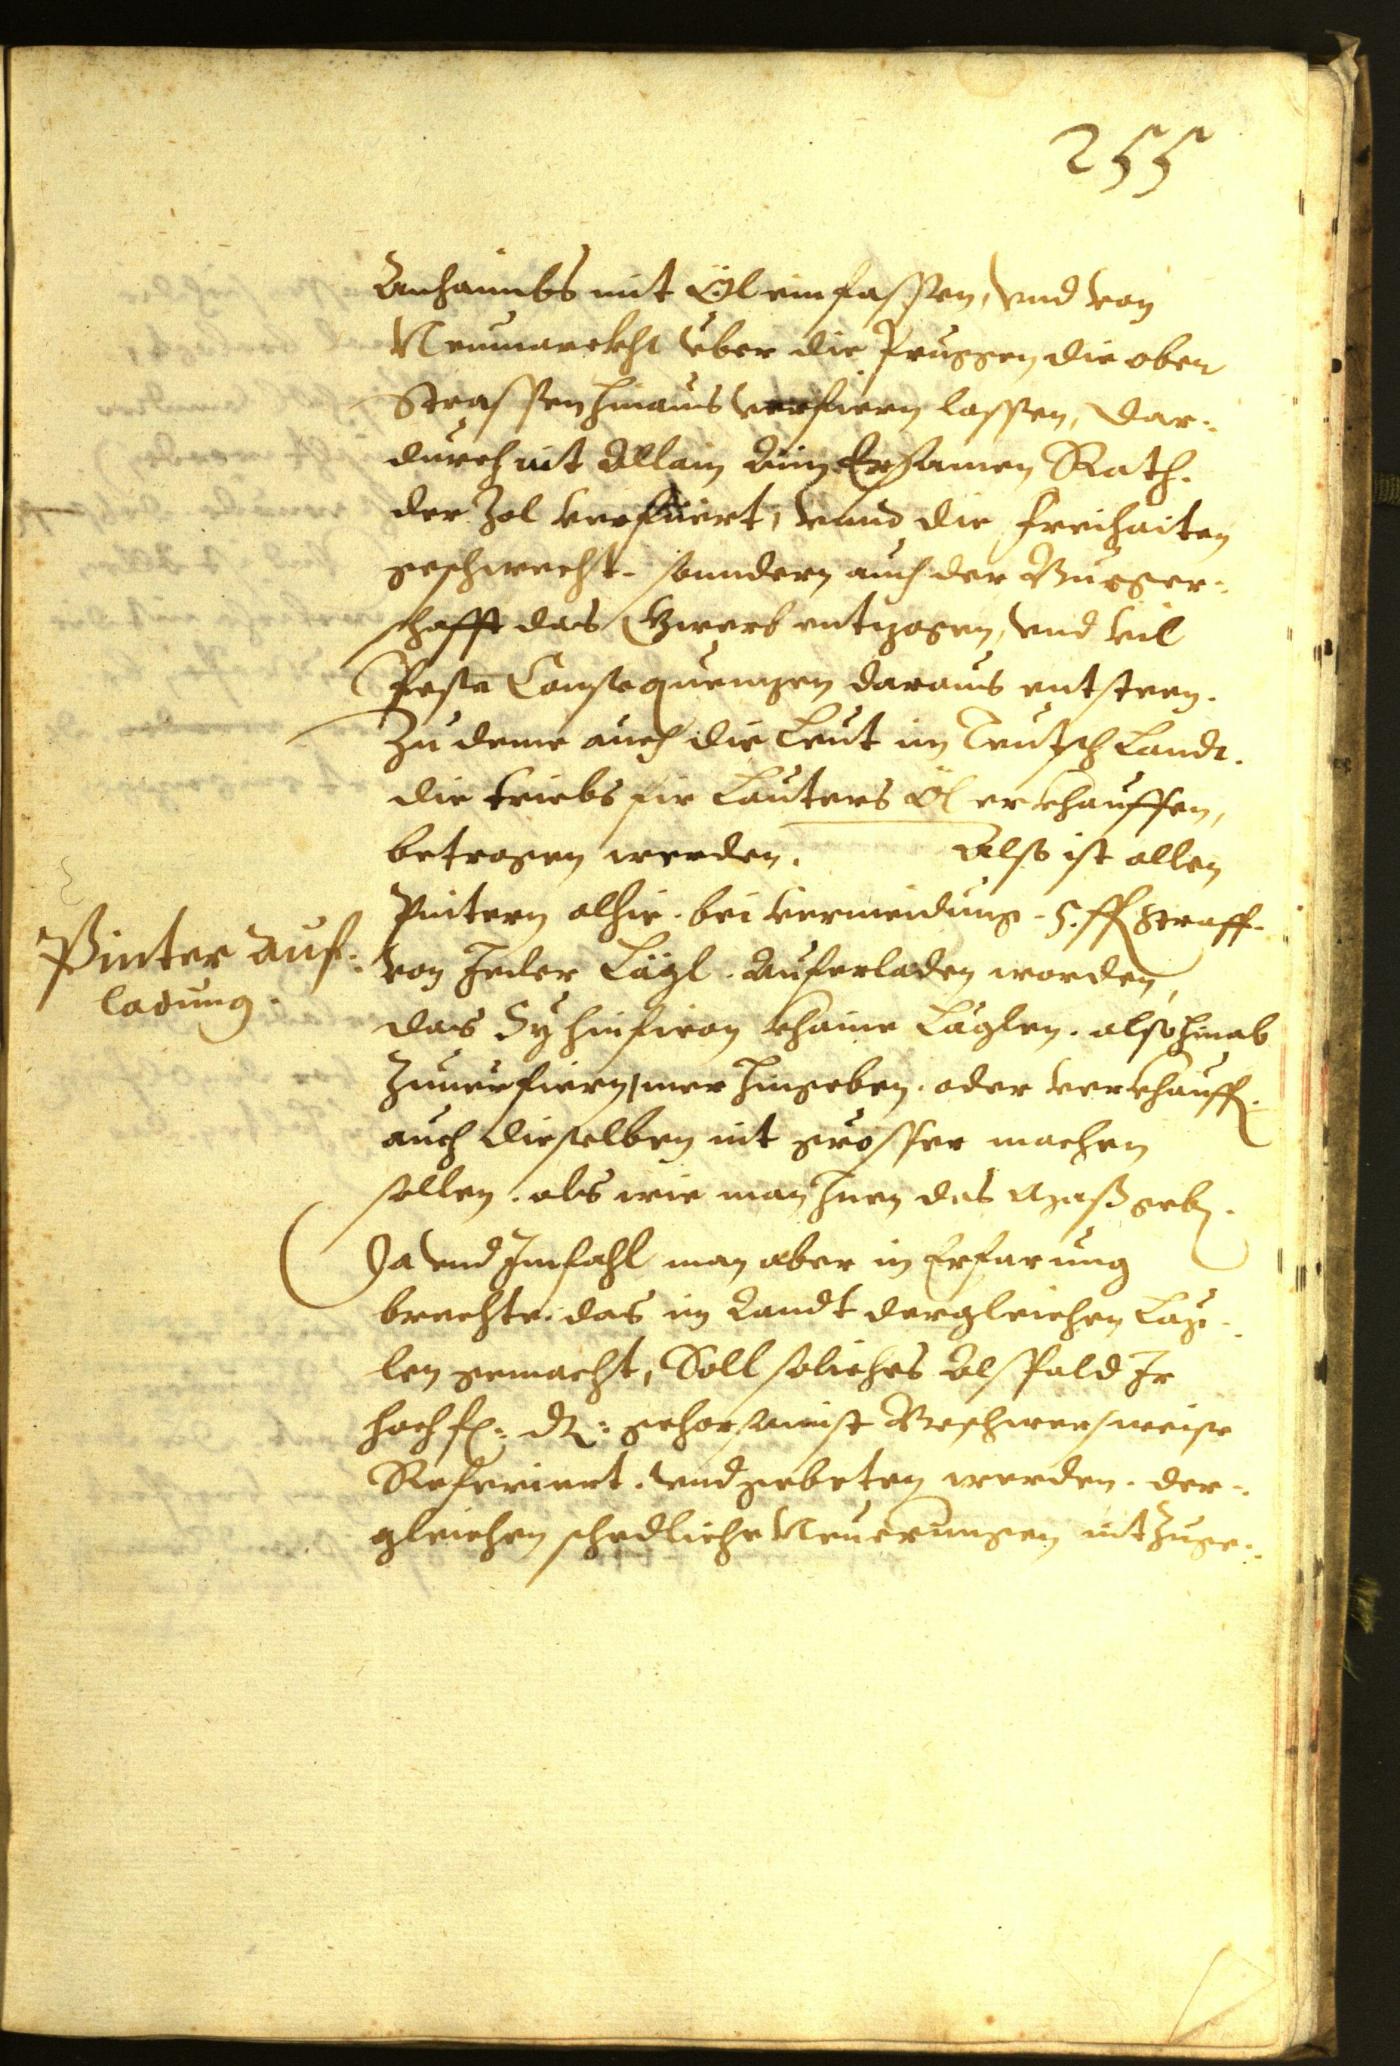 255
Anhaimbs mit Öl einfassen, vnd von
Neumarckht vber die Pruggen die ober
Strassen hinaus verfiern lassen, dar-
durch nit Allain Aim Ersamen Rath.
der Zol verfiert, vnnd die freihaiten
geschwecht. sonndern auch der Burger-
schafft das Gwerb entzogen, vnd vil
Pesse Consequenngen daraus entsteen.
Zu deme auch die Leut im Teutsch Landt.
die triebs fir Lauters Öl erkhauffen,
betrogen werden. Also ist allen
Pintern alhie. bei vermeidung. 5. fl Straff.
von Jeder Lägl. Auferladen worden,
Pinter auf-
ladung.
das Sy hinfiron khaine Läglen. also hinab
Zuuerfiern, mer hingeben. oder verkhauffen.
auch dieselben nit grosser machen
sollen. als wie man Inen das Maß geben.
Ja vnd Imfahl man aber in Erfarung
brechte. das im Landt dergleichen Läg-
len gemacht, Soll soliches Alspald Ir
hochfl: Dt: gehorsamist Beschwersweise
Referiert. vnd gebeten werden. der-
gleichen schedliche Neuerungen nit Zuge-